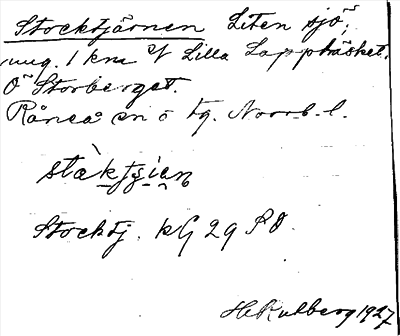 Stocktjärnen Liten sjö;
ung. 1 km Lilla Lappträsket.
O Storberget.
Råneå sn o tg. Norrb. l.
Stocktj. kG 29 SO
H Kullberg 1927